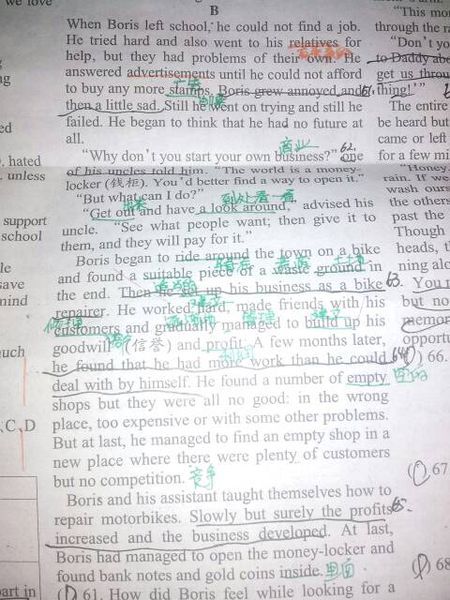 we love
B
When Boris left school, he could not find a job.
He tried hard and also went to his relatives for
help, but they had problems of their own. He
answered advertisements until he could not afford
to buy any more stamps. Boris grew annoyed, and 61.
then a little sad. Still he went on trying and still he
failed. He began to think that he had no future at
all.
商业
"Why don't you start your own business?" 62. one
of his uncles told him. "The world is a money-
locker (钱柜). You'd better find a way to open it."
"But what can I do?" 到处看一看
"Get out and have a look around," advised his
uncle. "See what people want; then give it to
them, and they will pay for it."
Boris began to ride around the town on a bike
and found a suitable piece of a waste ground in
the end. Then he set up his business as a bike 63.
repairer. He worked hard, made friends with his
修理 建立
customers and gradually managed to build up his
goodwill (信誉) and profit. A few months later,
he found that he had more work than he could 64.
deal with by himself. He found a number of empty
shops but they were all no good: in the wrong
place, too expensive or with some other problems.
But at last, he managed to find an empty shop in a
new place where there were plenty of customers
but no competition. 竞争
Boris and his assistant taught themselves how to
repair motorbikes. Slowly but surely the profits 65.
increased and the business developed. At last,
Boris had managed to open the money-locker and
found bank notes and gold coins inside. 里面
( ) 61. How did Boris feel while looking for a
ng
ed
, hated
unless
support
school
le
save
mind
much
, C, D
part in
"This mo
through the ra
"Don't yo
to Daddy abo
get us throu
thing!'"
The entire
be heard but
came or left
for a few mi
"Honey
rain. If we
wash ours
the others
past the
Though
heads, t
ning alo
You n
but no
memor
opportu
( ) 66.
( ) 67
( ) 68